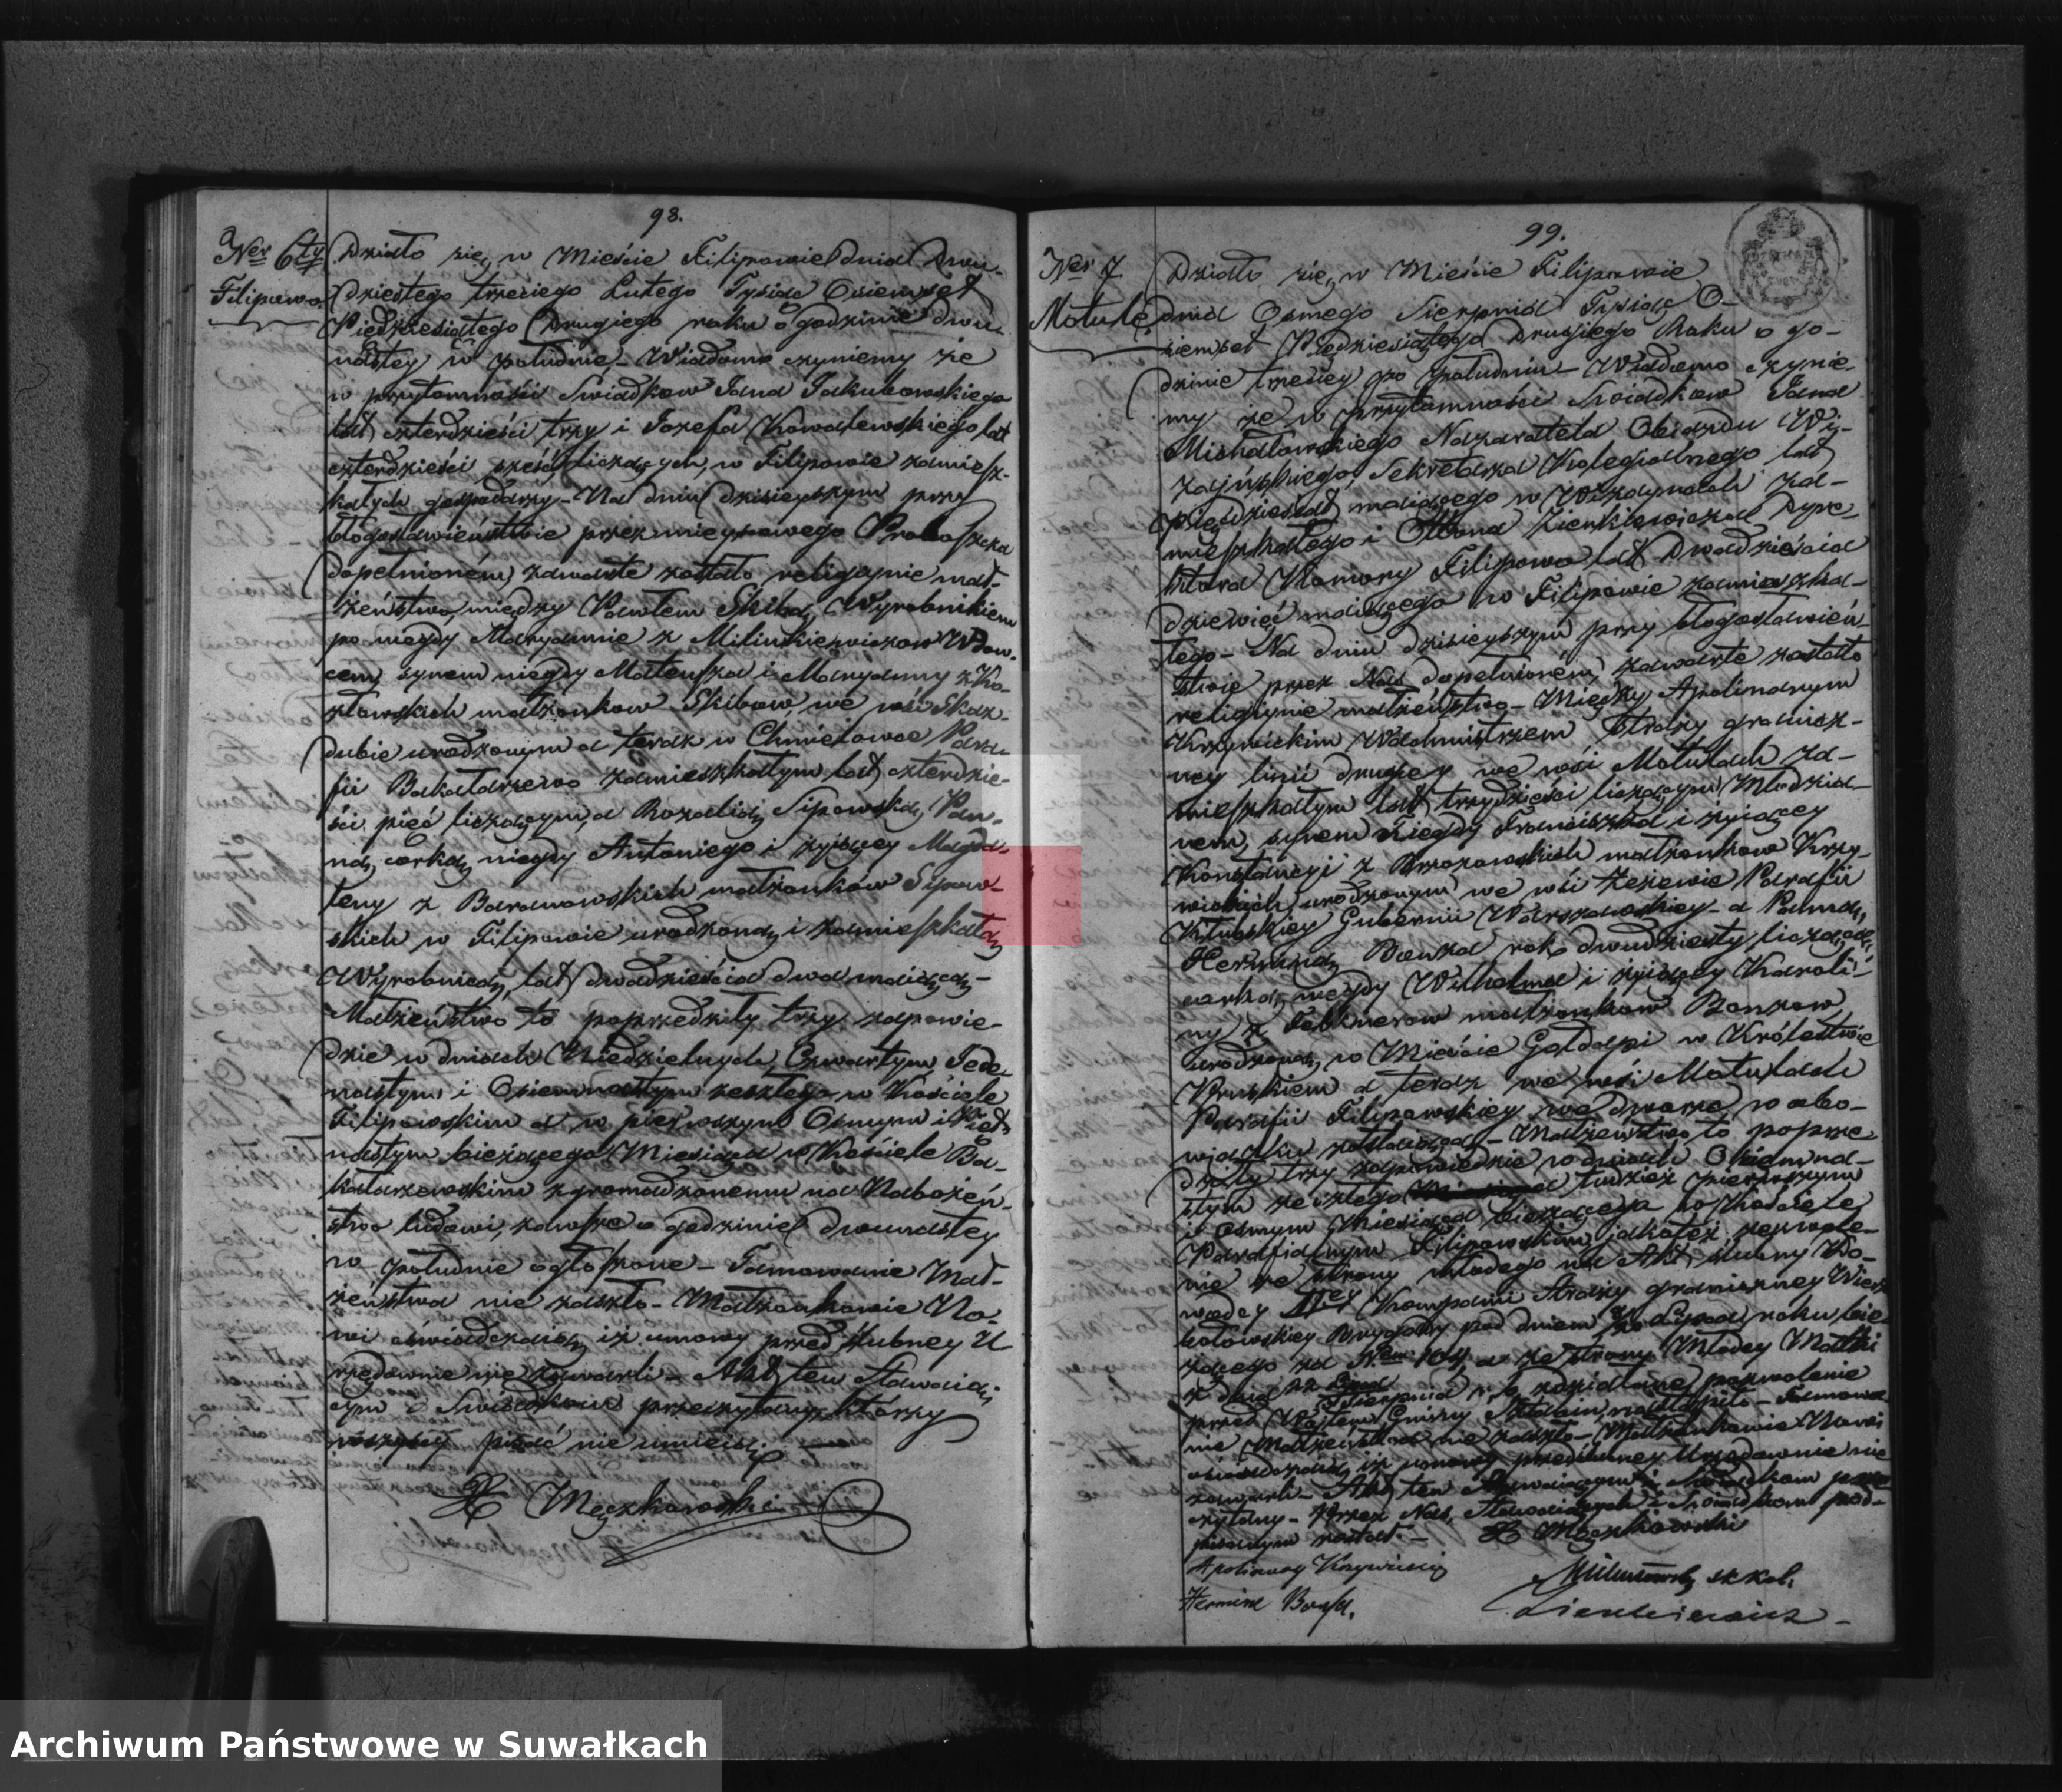 98.
Ner 6ty
Filipowo
Działo się w Mieście Filipowie dnia Dwu-
dziestego trzeciego Lutego Tysiąc Ośiemset
Pięćdziesiątego Drugiego roku o godzinie dwu-
nastey w południe – Wiadomo czyniemy że
w przytomności Swiadkow Jana Jakubowskiego
lat czterdzieści trzy i Jozefa Kowalewskiego lat
czterdzieści sześć liczących, w Filipowie zamiesz-
kałych gospodarzy – Na dniu dzisieyszym przy
błogosławieństwie przez mieyscowego Proboszcza
dopełnioném zawarte zostało religiynie mał-
żeństwo, między Pawłem Skibą, Wyrobnikiem
po niegdy Maryannie z Milinkiewiczow Wdow-
cem, synem niegdy Mateusza i Maryanny z Ko-
złowskich małżonkow Skibow, we wsi Skaz-
dubie urodzonym a teraz w Chmielowce Para-
fii Bakałarzewo zamieszkałym lat czterdzie-
ści pięć liczącym, a Rozalią Sipowską, Pan-
ną, corką niegdy Antoniego i żyjącey Magda-
leny z Baranowskich małżonków Sipow-
skich w Filipowie urodzoną i zamieszkałą
Wyrobnicą, lat dwadzieścia dwa maiącą –
Małżeństwo to poprzedziły trzy zapowie-
dzie w dniach Niedzielnych, Czwartym, Jede-
nastym i Osiemnastym zeszłego w Kościele
Filipowskim a w pierwszym Osmym i Pięt-
nastym bieżącego Miesiąca w Kościele Ba-
kałarzewskim zgromadzonemu na Nabożeń-
stwo ludowi, zawsze o godzinie dwunastey
w południe ogłoszone – Tamowanie Mał-
żeństwa nie zaszło – Małżonkowie No-
wi oświadczaią iż umowy przedślubney U-
rzędownie nie zawarli – Akt ten stawaią-
cym i Świadkom przeczytany, którzy
wszyscy pisać nie umieią –
X Męczkowski
99.
Ner 7
Motule
Działo się w Mieście Filipowie
dnia Osmego Sierpnia Tysiąc O-
siemset Pięćdziesiątego Drugiego Roku o go-
dzinie trzeciey po południu – Wiadomo czynie-
my że w przytomności Swiadkow Jana
Michałowskiego Nadzoratela Obiazdu Wi-
zayńskiego, Sekretarza Kolegialnego lat
pięćdziesiąt maiącego w Wizaynach za-
mieszkałego i Zienkiewicza Dyre-
ktora Komory Filipowo lat Dwadzieścia
dziewięć maiącego w Filipowie zamieszka-
łego – Na dniu dzisieyszym przy błogosławień-
stwie przez Nas dopełnioném, zawarte zostało
religiynie małżeństwo – Między Apolinarym
Krzywickim Wachmistrzem Straży granicz-
ney linii drugiey we wsi Motulach za-
mieszkałym lat trzydzieści liczącym, Młodzia-
nem, synem Niegdy Franciszka i żyiącey
Konstancyi z Brzozowskich małżonkow Krzy-
wickich, urodzonym we wsi Parafii
Kłubskiey Gubernii Warszawskiey – a Panną,
Herminą Bouza rok dwudziesty liczącą,
corką niegdy Wilhelma i żyiącey Karoli-
ny z małżonkow Bouzow
urodzoną, w Mieście Gołdapi w Królestwie
Pruskiem a teraz we wsi Motulach
Parafii Filipowskiey we dworze w obo-
wiązku zostaiącą – Małżeństwo to poprze-
dziły trzy zapowiedzie w dniach Osiemna-
stym zeszłego tudzież pierwszym
i Osmym Miesiąca bieżącego w Kościele
Parafialnym Filipowskim, jakoteż zezwole-
nie ze strony młodego na Akt ślubny Do-
wodcy Kompanii Straży graniczney Wierz-
bołowskiey Brygady pod dniem roku bie-
żącego za Nem 1041, a ze strony Młodey Matki
z dnia Sierpnia r. b. zeznane pozwolenie
przed Wóytem Gminy nastąpiło – Tamowa-
nie Małżeństwa nie zaszło – Małżonkowie Nowi
oświadczaią iż umowy przedślubney Urzędownie nie
zawarli – Akt ten Stawaiącym i Swiadkom prze-
czytany – Przez Nas, Stawaiących i Swiadkow pod-
pisanym został –
X Męczkowski
Apolinary Krzywicki
Hermine Bouza.
Zienkiewicz
Archiwum Państwowe w Suwałkach